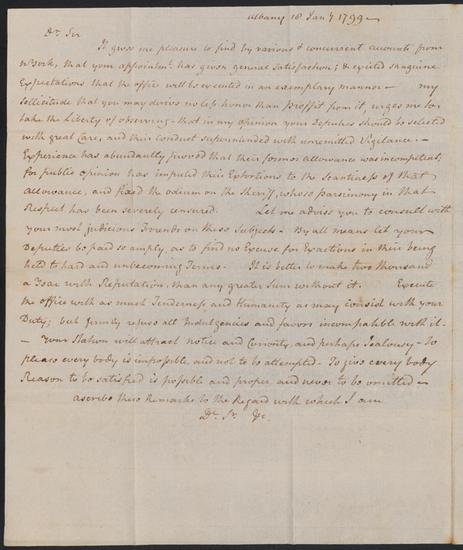 Albany 18 Jany 1799 —
Dr. Sir
It gives me pleasure to find by various & concurrent accounts from
NYork, that your appointmt. has given general satisfaction; & excited sanguine
Expectations that the office will be executed in an exemplary manner — my
sollicitude that you may derive no less honor than proffit from it, urges me to
take the Liberty of observing — that in my opinion your Deputies should be selected
with great Care, and their conduct superintended with unremitted Vigilance. —
Experience has abundantly proved that their former allowance was incompetent;
for public opinion has imputed their Extortions to the Scantiness of that
allowance, and fixed the odium on the Sheriff, whose parsimony in that
Respect has been severely censured. Let me advise you to consult with
your most judicious Friends on these Subjects — By all means let your
Deputies be paid so amply, as to find no Excuse for Exactions in their being
held to hard and unbecoming Terms — It is better to make two thousand
a Year with Reputation, than any greater Sum without it. Execute
the office with as much Tenderness and Humanity as may consist with your
Duty; but firmly refuse all Indulgencies and favors incompatible with it —
— Your Station will attract notice and Curiosity, and perhaps Jealousy — To
please every body is impossible, and not to be attempted — To give every body
Reason to be satisfied is possible and proper, and never to be omitted —
ascribe these Remarks to the Regard with which I am
Dr. Sr. &c.